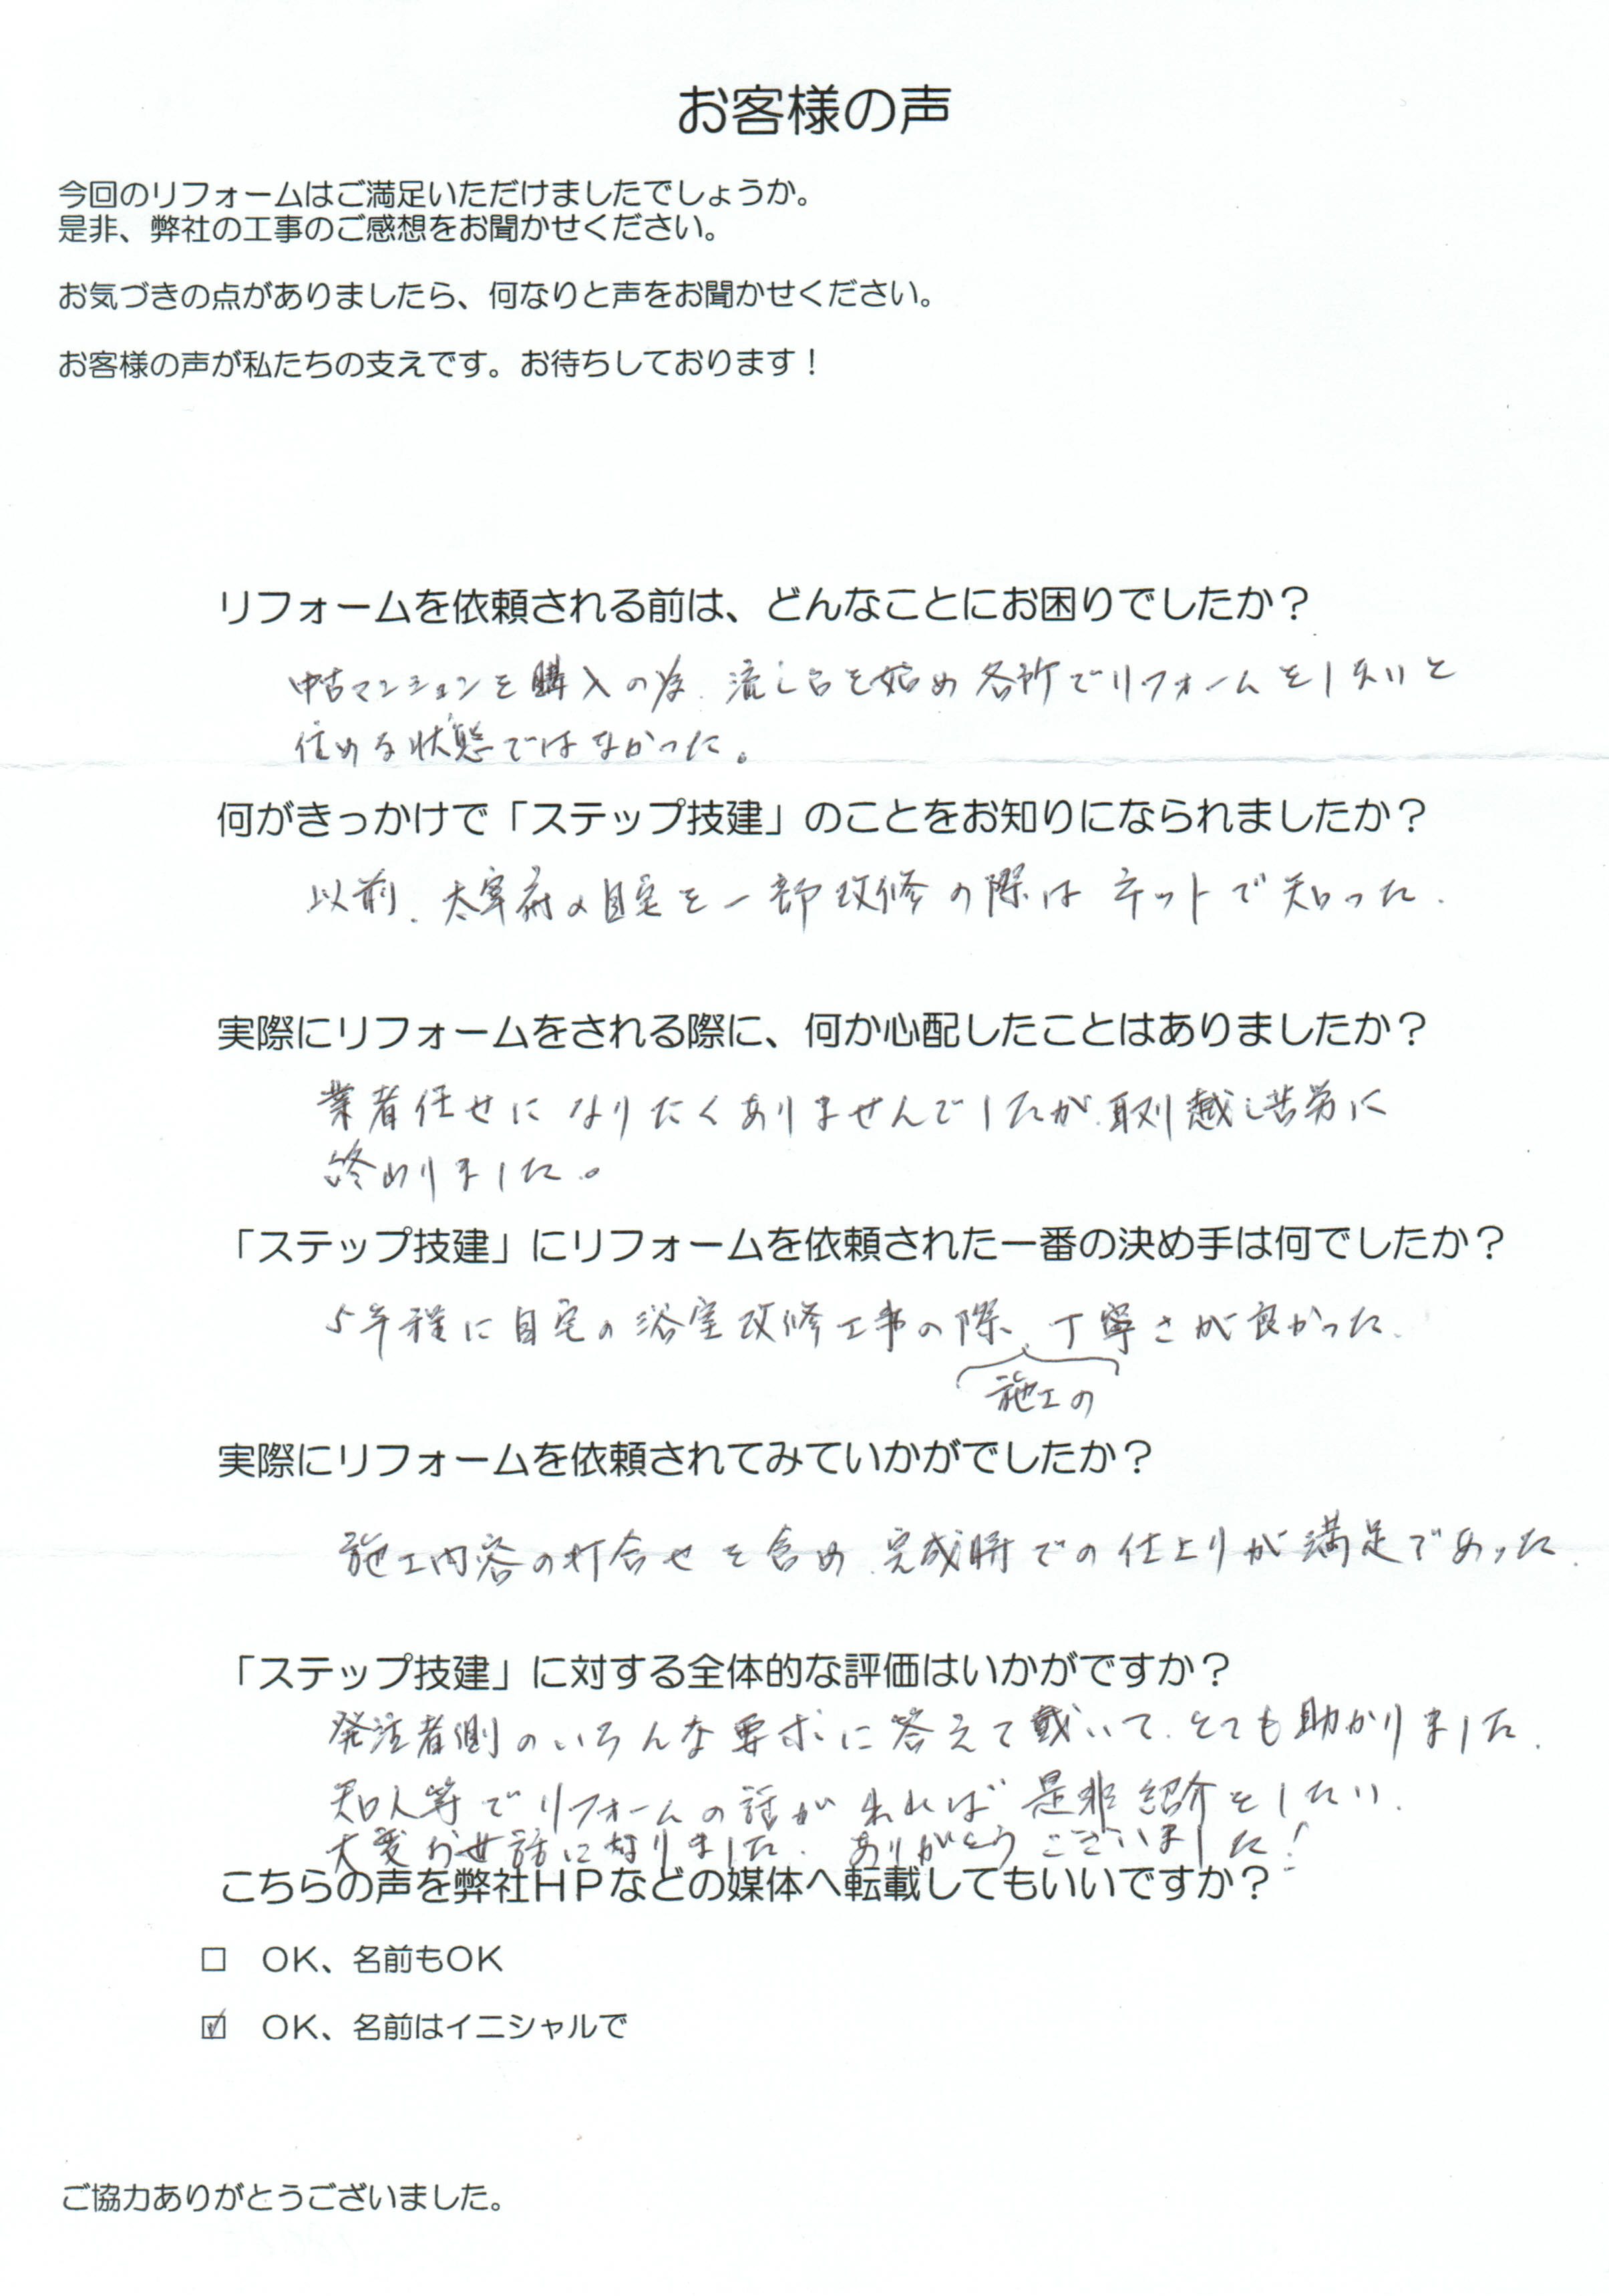 お客様の声
今回のリフォームはご満足いただけましたでしょうか。
是非、弊社の工事のご感想をお聞かせください。
お気づきの点がありましたら、何なりと声をお聞かせください。
お客様の声が私たちの支えです。お待ちしております！
リフォームを依頼される前は、どんなことにお困りでしたか？
中古マンションを購入の為、流し台を始め各所でリフォームをしないと
住める状態ではなかった。
何がきっかけで「ステップ技建」のことをお知りになられましたか？
以前、太宰府の自宅を一部改修の際はネットで知った.
実際にリフォームをされる際に、何か心配したことはありましたか？
業者任せになりたくありませんでしたが、取り越し苦労に
終わりました。
「ステップ技建」にリフォームを依頼された一番の決め手は何でしたか？
5年程に自宅の浴室改修工事の際、丁寧さが良かった.
施工の
実際にリフォームを依頼されてみていかがでしたか？
施工内容の打合せを含め、完成時での仕上りが満足であった.
「ステップ技建」に対する全体的な評価はいかがですか？
発注者側のいろんな要求に答えて戴いて、とても助かりました.
知人等でリフォームの話があれば是非紹介をしたい.
大変お世話になりました. ありがとうございました！
こちらの声を弊社ＨＰなどの媒体へ転載してもいいですか？
□ OK、名前もOK
☑ OK、名前はイニシャルで
ご協力ありがとうございました。